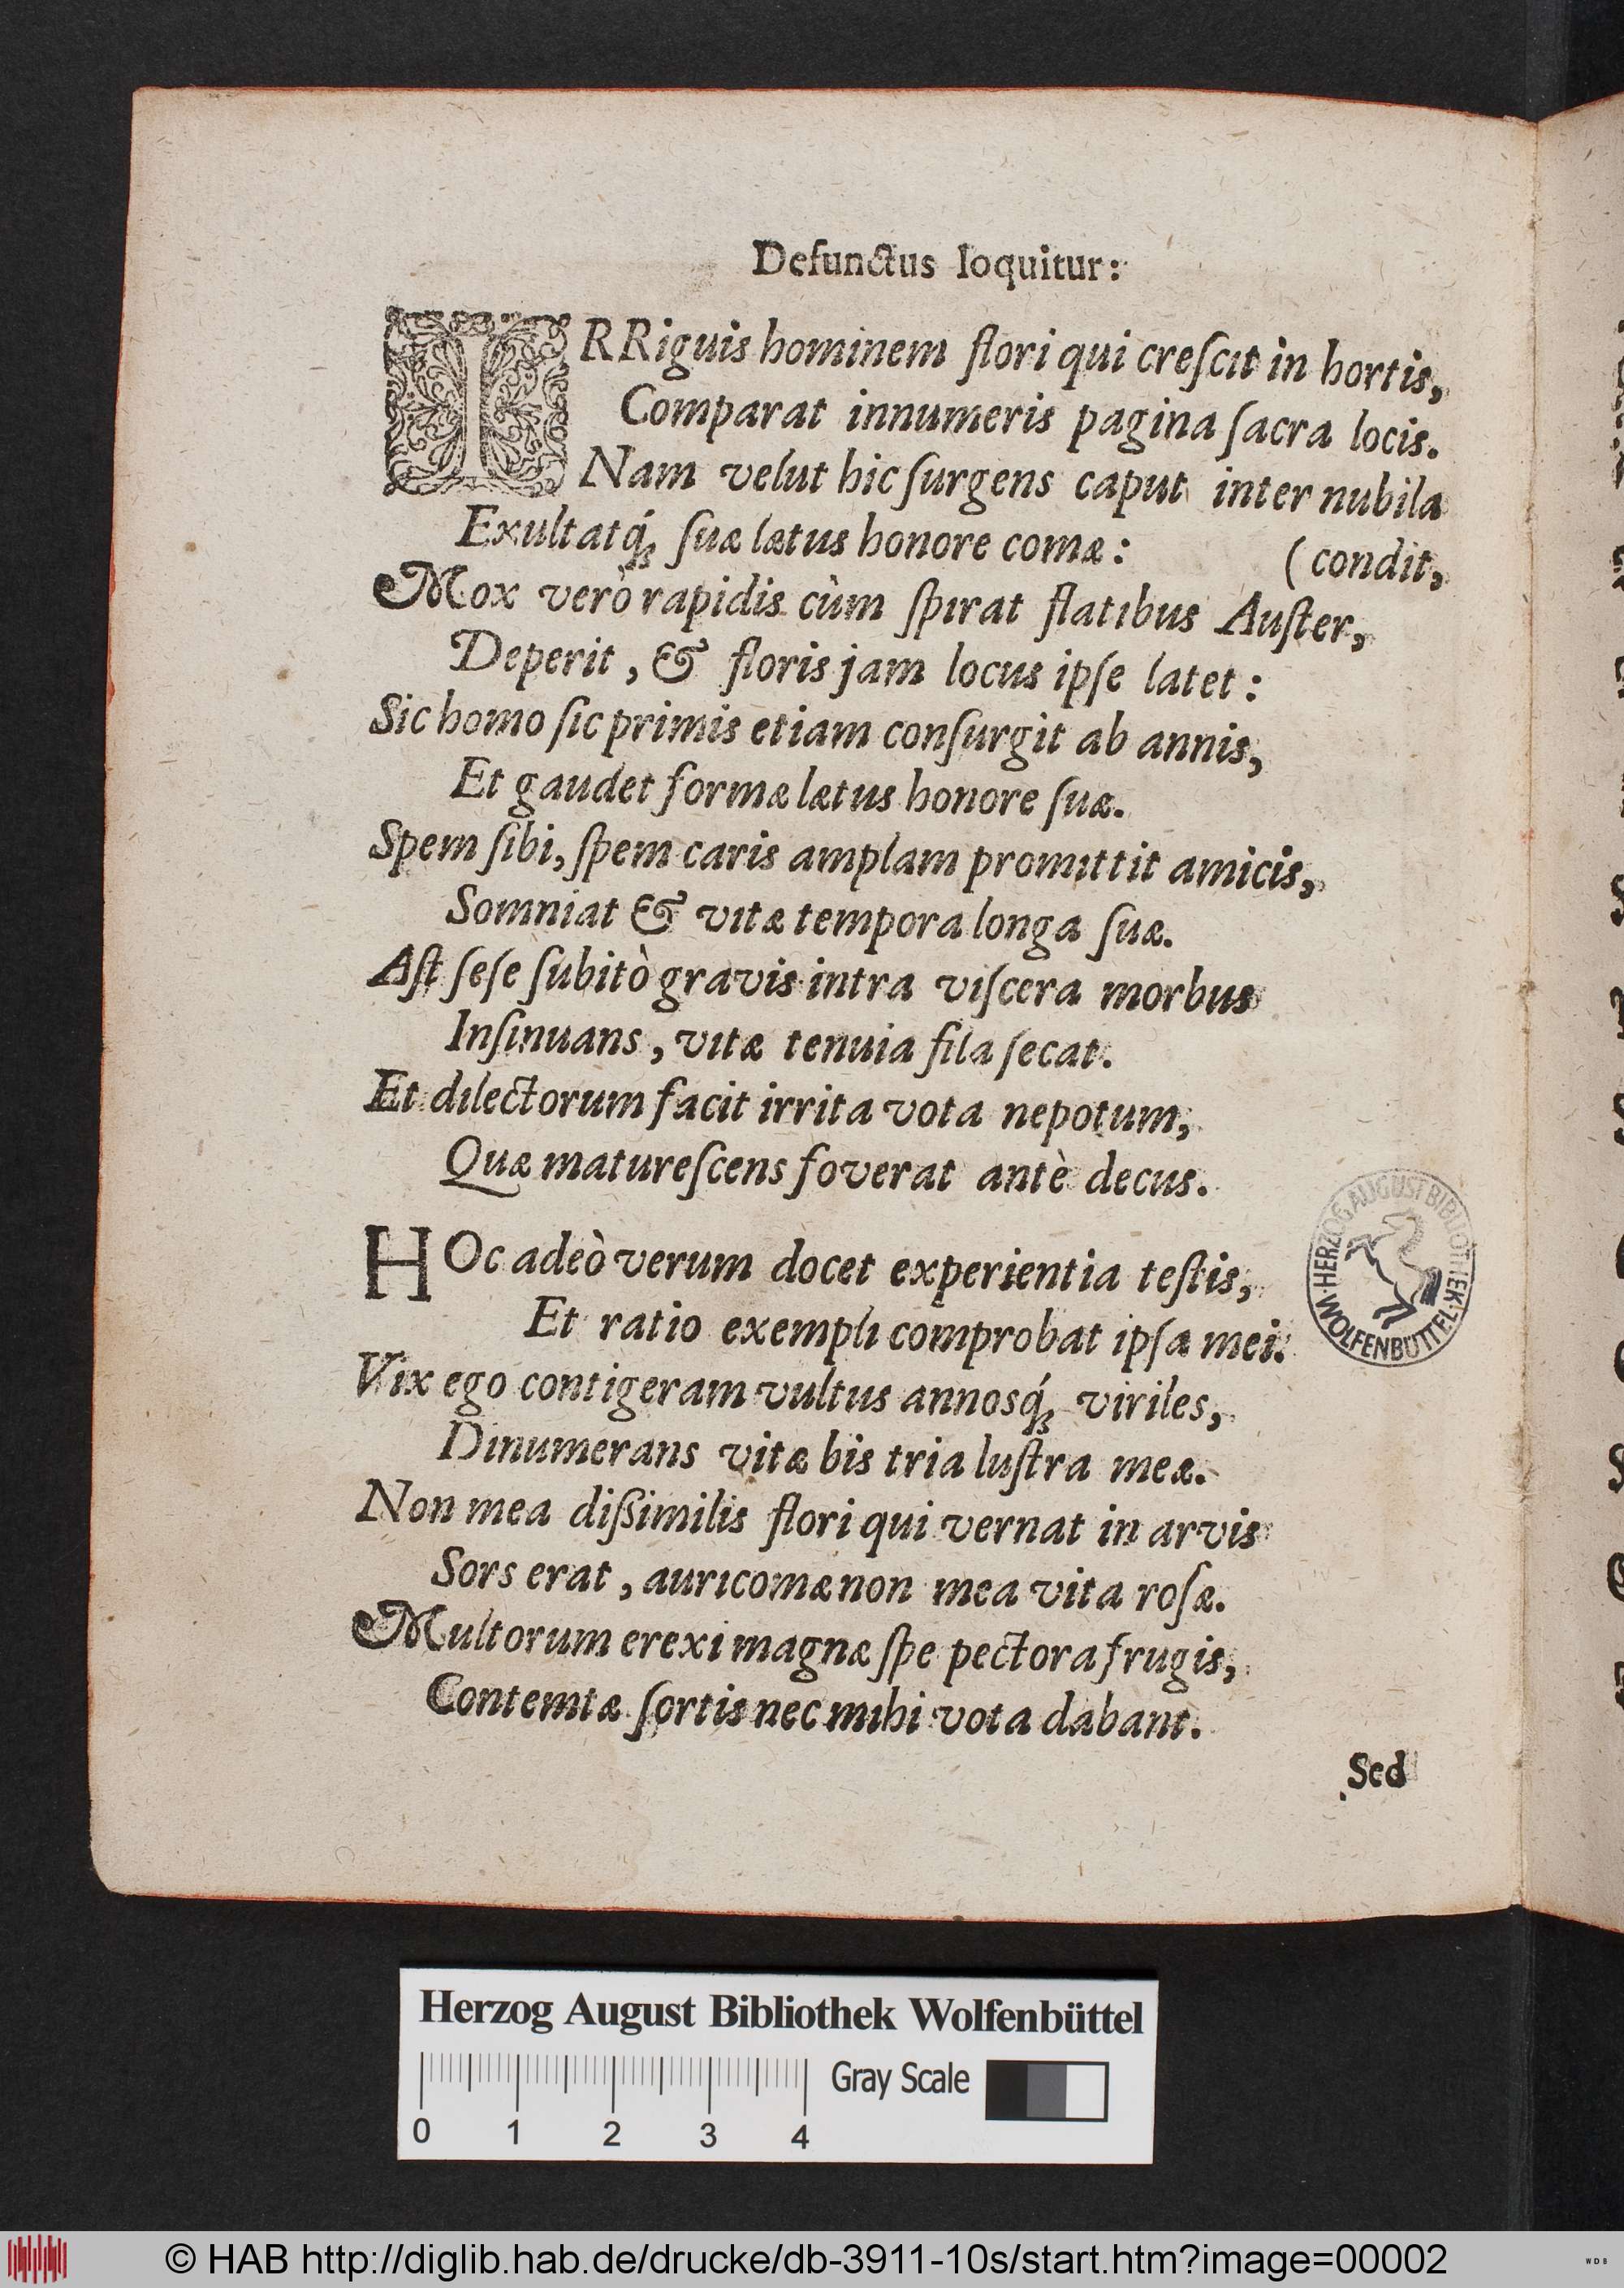 Defunctus loquitur:
IRRiguis hominem flori qui creſcit in hortis,
Comparat innumeris pagina ſacra locis.
Nam velut hic ſurgens caput inter nubila
Exultatq́; ſuæ lætus honore comæ: (condit,
Mox verò rapidis cùm ſpirat flatibus Auſter,
Deperit, & floris jam locus ipſe latet:
Sic homo ſic primis etiam conſurgit ab annis,
Et gaudet formæ lætus honore ſuæ.
Spem ſibi, ſpem caris amplam promittit amicis,
Somniat & vitæ tempora longa ſuæ.
Aſt ſeſe ſubitò gravis intra viſcera morbus
Inſinuans, vitæ tenuia fila ſecat.
Et dilectorum facit irrita vota nepotum,
Quæ matureſcens foverat antè decus.
HOc adeò verum docet experientia teſtis,
Et ratio exempli comprobat ipſa mei.
Vix ego contigeram vultus annosq́; viriles,
Dinumerans vitæ bis tria luſtra meæ.
Non mea diſſimilis flori qui vernat in arvis
Sors erat, auricomæ non mea vita roſæ.
Multorum erexi magnæ ſpe pectora frugis,
Contemtæ ſortis nec mihi vota dabant.
Sed
HERZOG AUGUST BIBLIOTHEK
WOLFENBÜTTEL
Herzog August Bibliothek Wolfenbüttel
Gray Scale
0 1 2 3 4
© HAB http://diglib.hab.de/drucke/db-3911-10s/start.htm?image=00002
WDB